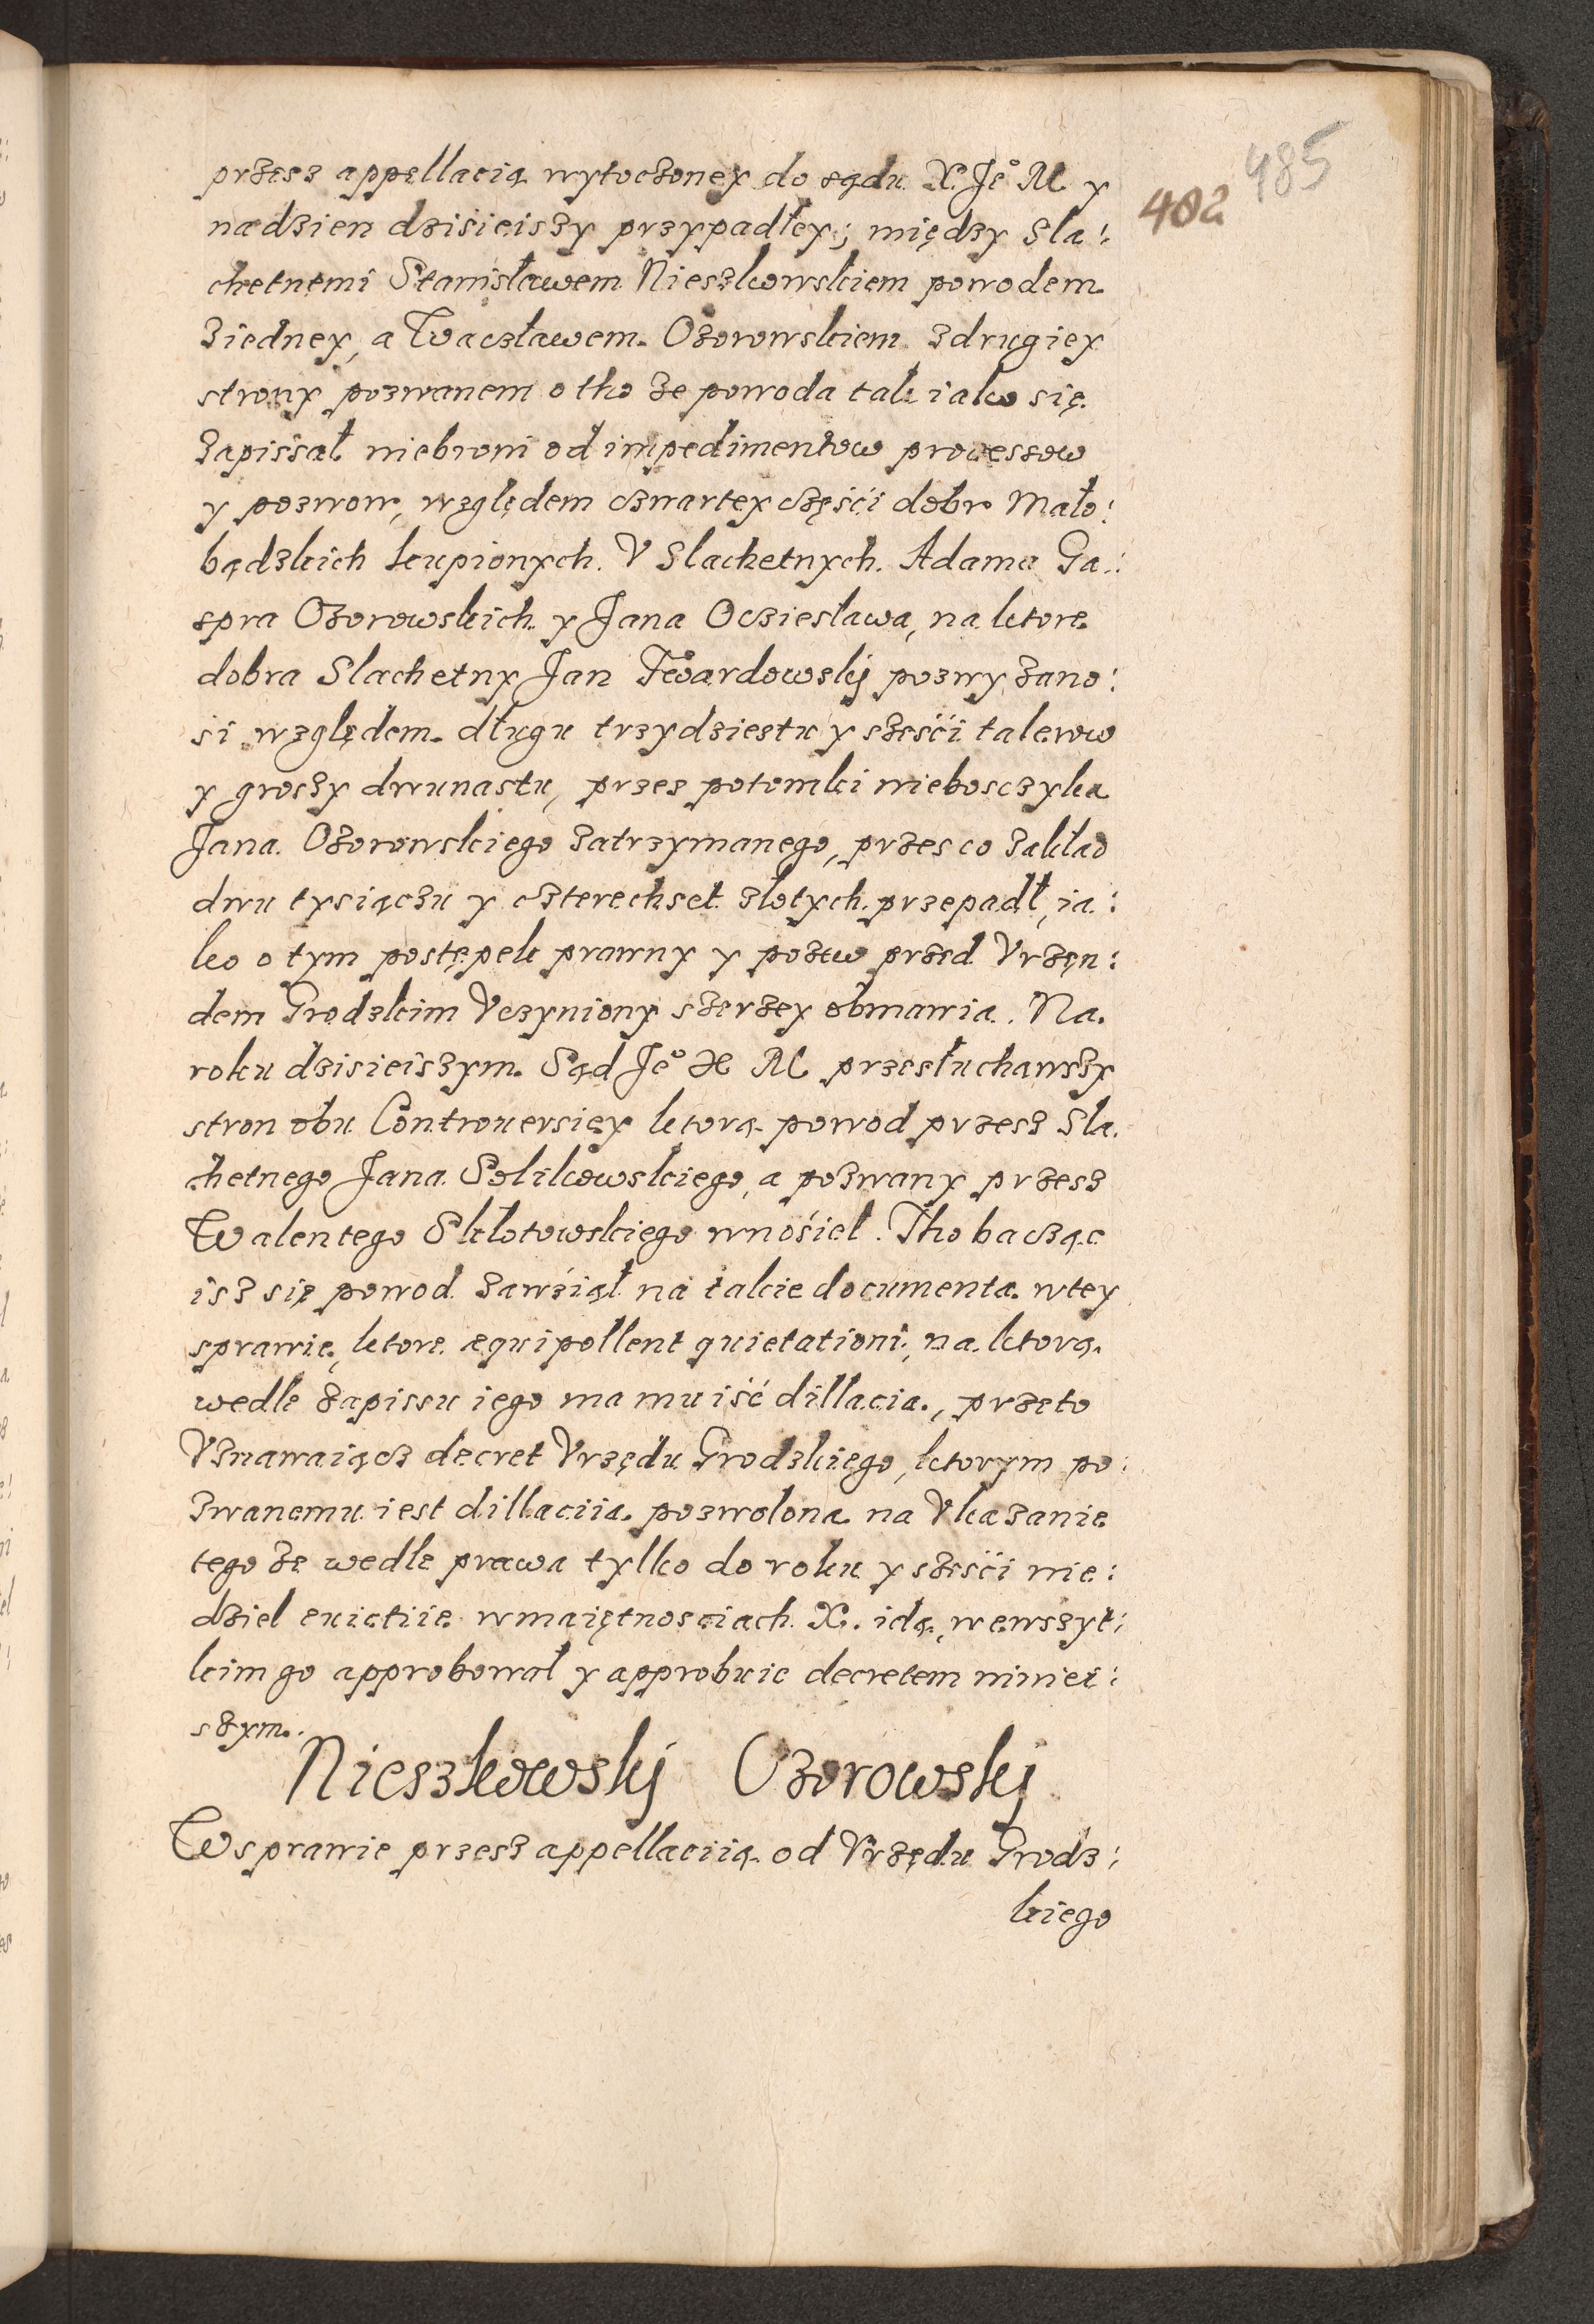 485
402
przesz appellacią wytoczoney do sądu X. Je° M y
nadzien dzisieiszy przypadłey; między Sla:
chetnemi Stanisławem Nieszkowskiem powodem
ziedney, a Waczławem Ozorowskiem zdrugiey
strony pozwanem o tho że powoda tak iako się
zapissał niebroni od impedimentow processow
y pozwow, względem czwartey części dobr Mało:
bądzkich kupionych V Slachetnych Adama Ga:
spra Ozorowskich y Jana Ocziesława, na ktore
dobra Slachetny Jan Twardowskj pozwy zano:
si względem długu trzydziestu y sześci talerow
y groszy dwunastu, przez potomki nieboszczyka
Jana Ozorowskiego zatrzymanego, przes co zakład
dwu tysiączu y czterechset zlotych przepadł, ia:
ko o tym postępek prawny y pozew przed Vrzęn:
dem Grodzkim Vczyniony szerzey obmawia. Na
roku dzisieiszym Sąd Je° X M przesłuchawszy
stron obu Controuersiey ktorą powod przesz Sla
chetnego Jana Solikowskiego, a pozwany przesz
Walentego Skłotowskiego wnosieł. Tho bacząc
isz się powod zawziął na takie documenta wtey
sprawie, ktore æquipollent quietationi, na ktorą
wedle zapissu iego ma mu iść dillacia, przeto
Vznawaiącz decret Vrzędu Grodzkiego, ktorym po:
zwanemu iest dillaciia pozwolona na Vkazanie
tego że wedle prawa tylko do roku y sześci nie:
dziel euictiie wmaiętnosciach X. idą, wewszyt:
kim go approbował y approbuie decretem niniei:
szym.
Nieszkowskj Ozorowskj
Wsprawie przesz appellaciią od Vrzędu Grodz:
kiego